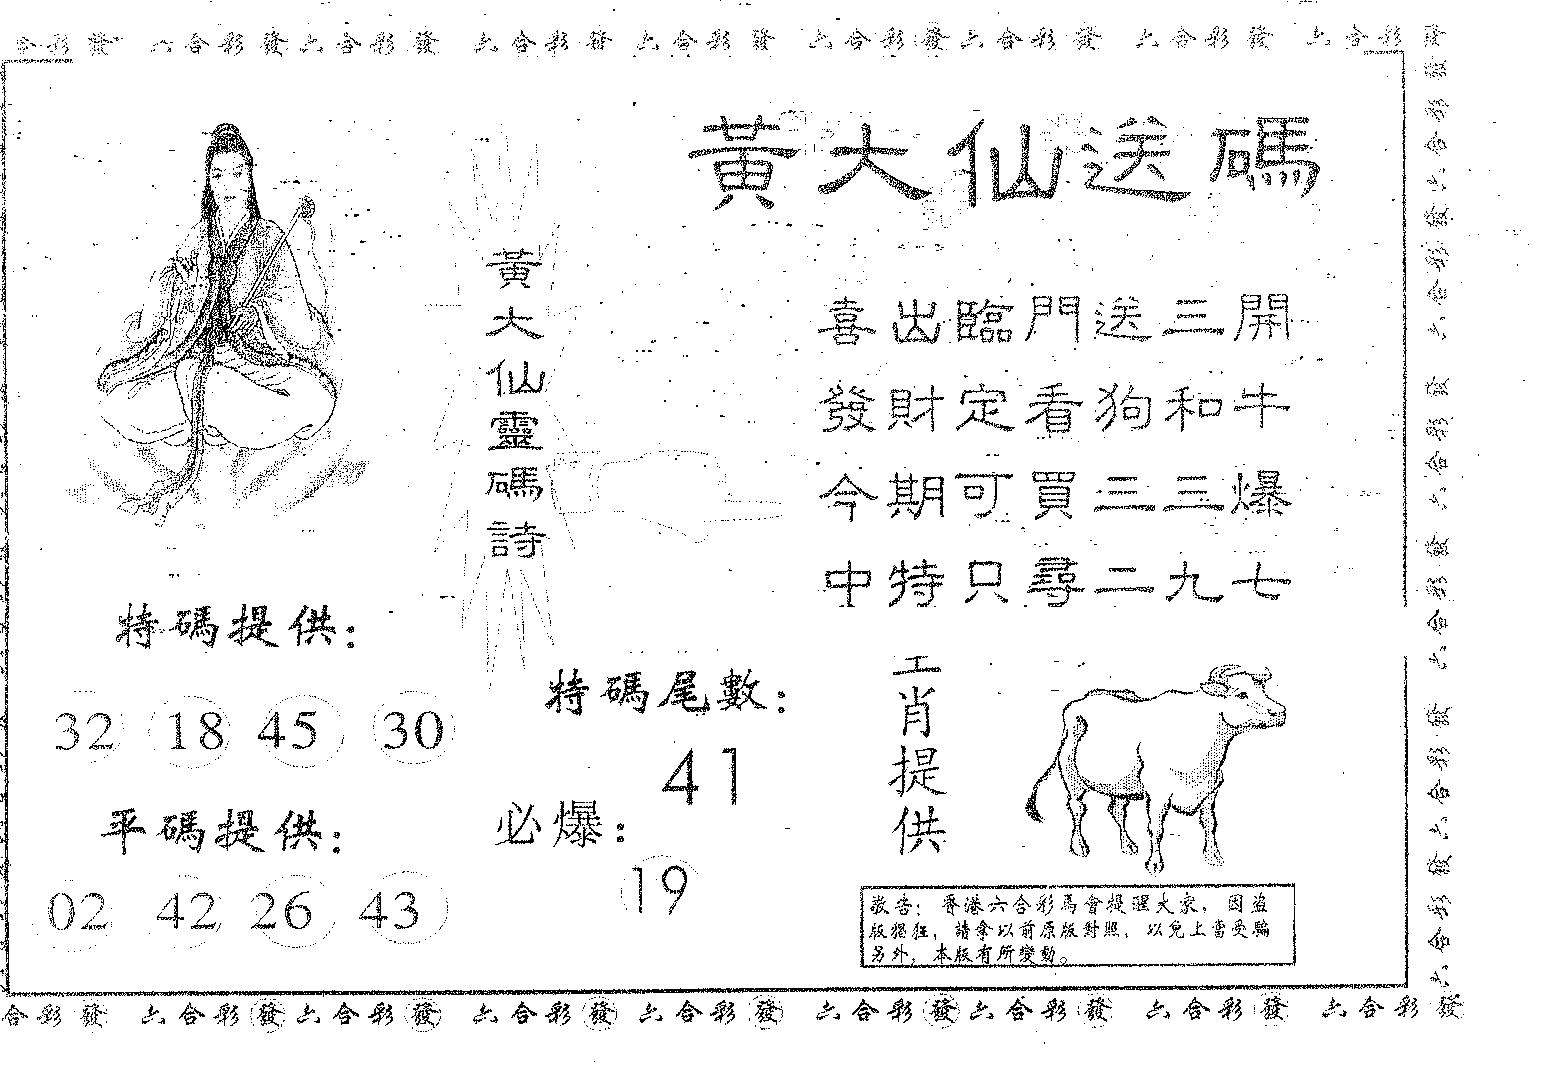 合彩發 六合彩發六合彩發 六合彩發 六合彩發 六合彩發六合彩發 六合彩發 六合彩發
黃大仙送碼
黃大仙靈碼詩
喜出臨門送三開
發財定看狗和牛
今期可買三三爆
中特只尋二九七
特碼提供：
32 18 45 30
平碼提供：
02 42 26 43
特碼尾數：
41
必爆：
19
工肖提供
敬告：香港六合彩馬會提醒大家，因盜
版猖狂，請拿以前原版對照，以免上當受騙
另外，本版有所變動。
發彩合六發彩合六發彩合六發彩合六發彩合六發彩合六
合彩發 六合彩發六合彩發 六合彩發 六合彩發 六合彩發六合彩發 六合彩發 六合彩發